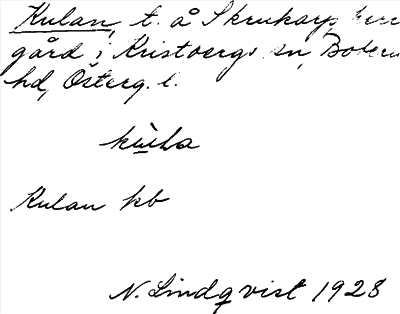 Kulan, t. å Skrukarp, herr
gård i Kristbergs sn, Bobergs
hd, Österg. l.
kùla
Kulan kb
N. Lindqvist 1928